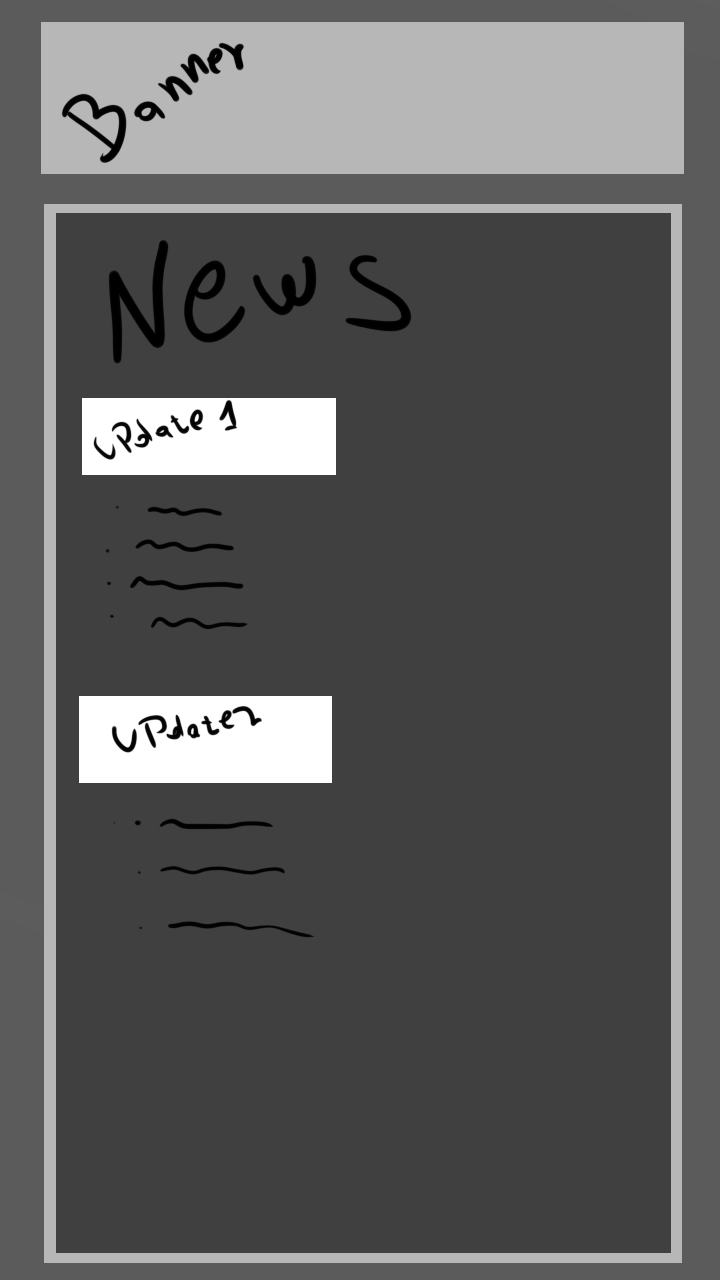 Banner
News
UPdate 1
UPdate2